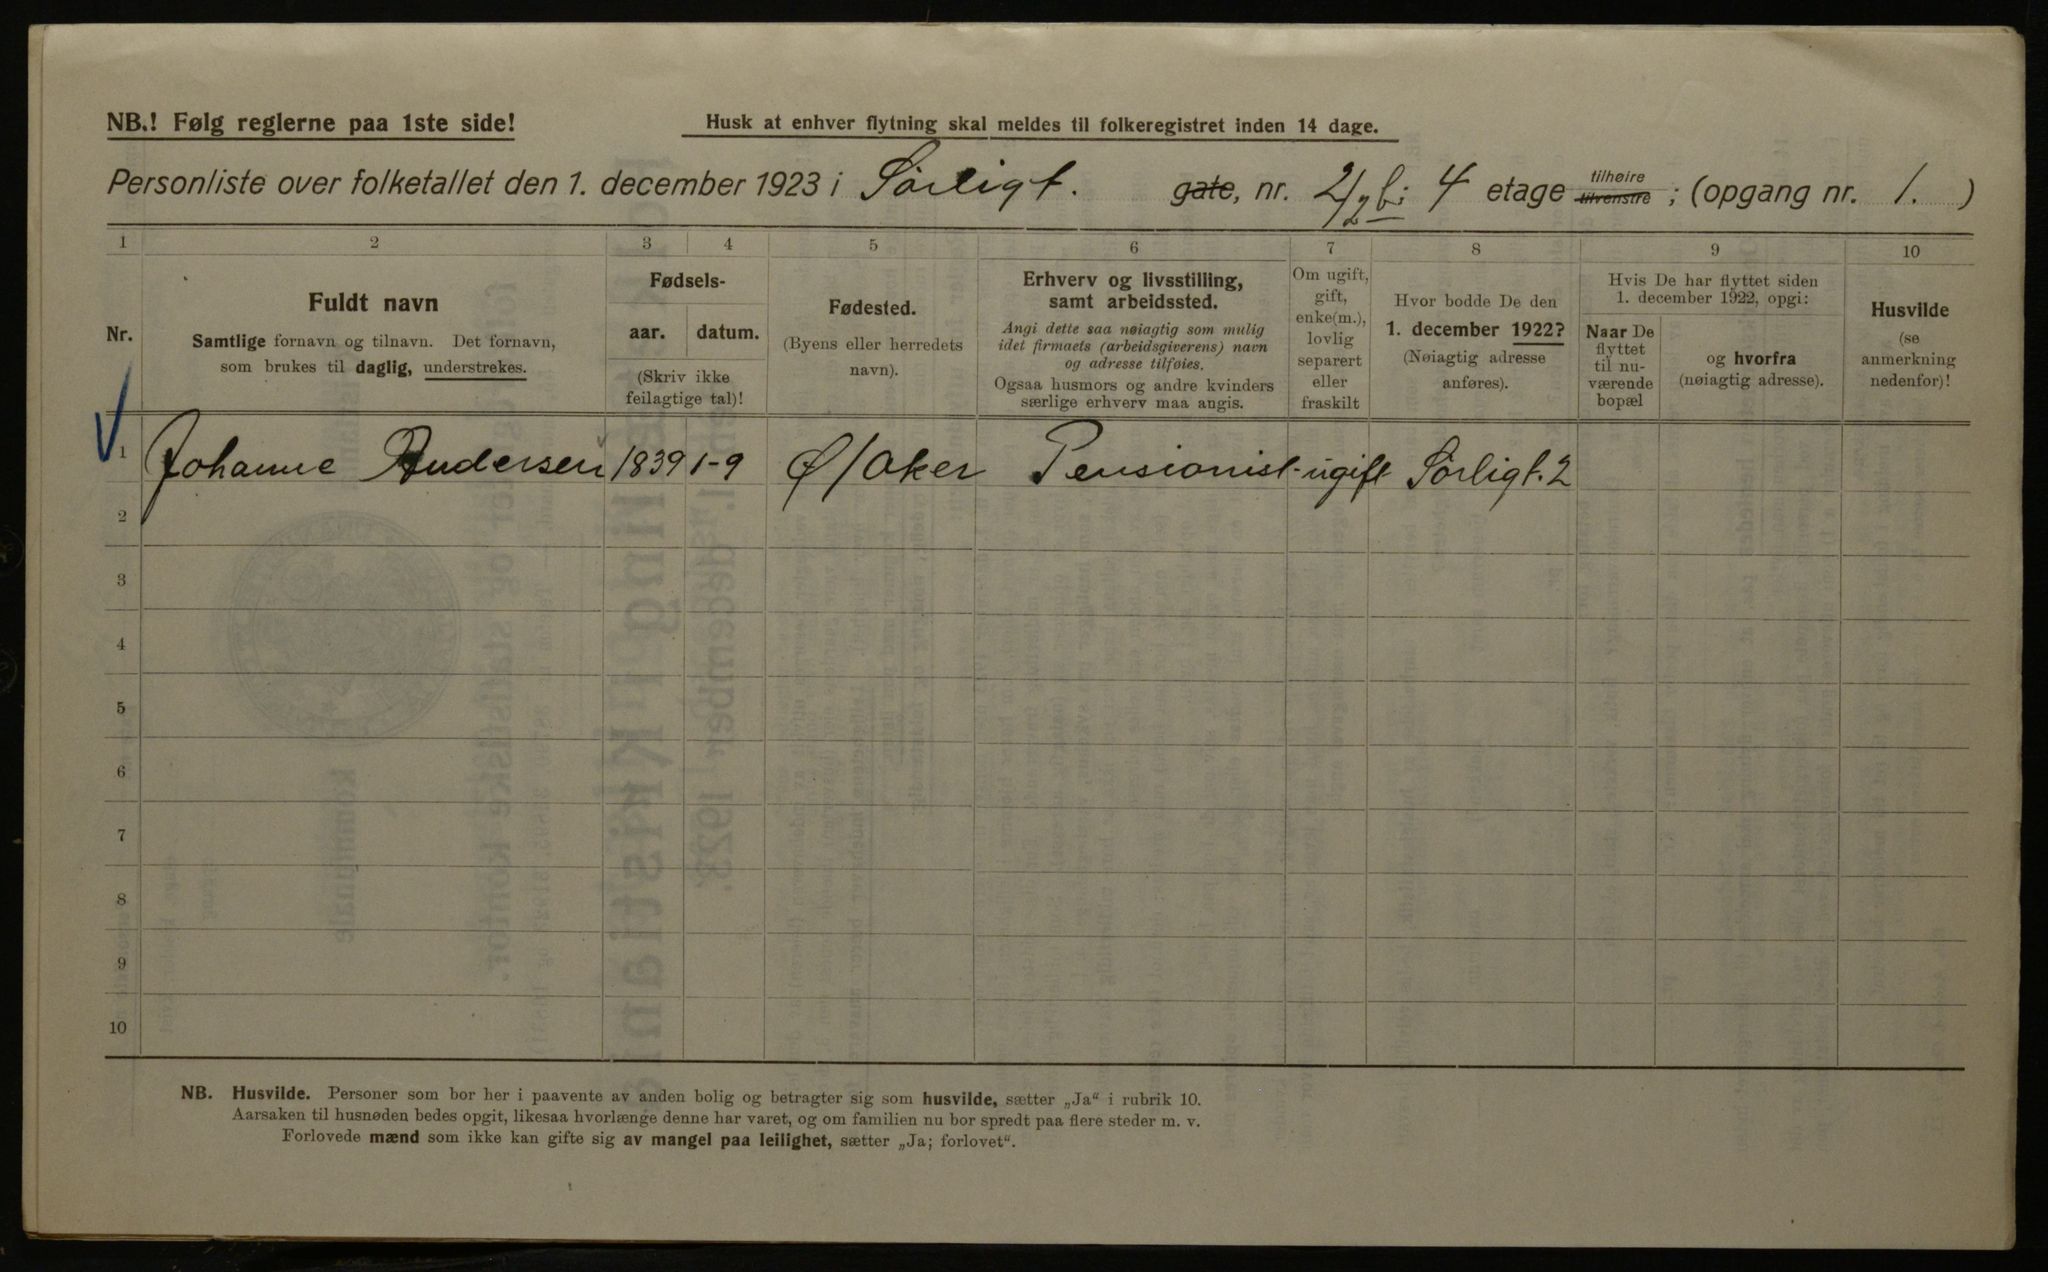 NB.! Følg reglerne paa 1ste side!
Husk at enhver flytning skal meldes til folkeregistret inden 14 dage.
Personliste over folketallet den 1. december 1923 i Sørligt. gate, nr. 2/2 b: 4 etage tilhøire tilvenstre ; (opgang nr. 1. )
1 2 3 4 5 6 7 8 9 10
Nr.
Fuldt navn
Samtlige fornavn og tilnavn. Det fornavn,
som brukes til daglig, understrekes.
Fødsels-
aar. datum.
(Skriv ikke
feilagtige tal)!
Fødested.
(Byens eller herredets
navn).
Erhverv og livsstilling,
samt arbeidssted.
Angi dette saa nøiagtig som mulig
idet firmaets (arbeidsgiverens) navn
og adresse tilføies.
Ogsaa husmors og andre kvinders
særlige erhverv maa angis.
Om ugift,
gift,
enke(m.),
lovlig
separert
eller
fraskilt
Hvor bodde De den
1. december 1922?
(Nøiagtig adresse
anføres).
Hvis De har flyttet siden
1. december 1922, opgi:
Naar De
flyttet
til nu-
værende
bopæl
og hvorfra
(nøiagtig adresse).
Husvilde
(se
anmerkning
nedenfor)!
1 Johanne Andersen 1839 1-9 Ø/Aker Pensionist - ugift Sørligt. 2
2
3
4
5
6
7
8
9
10
NB. Husvilde. Personer som bor her i paavente av anden bolig og betragter sig som husvilde, sætter „Ja“ i rubrik 10.
Aarsaken til husnøden bedes opgit, likesaa hvorlænge denne har varet, og om familien nu bor spredt paa flere steder m. v.
Forlovede mænd som ikke kan gifte sig av mangel paa leilighet, sætter „Ja; forlovet“.